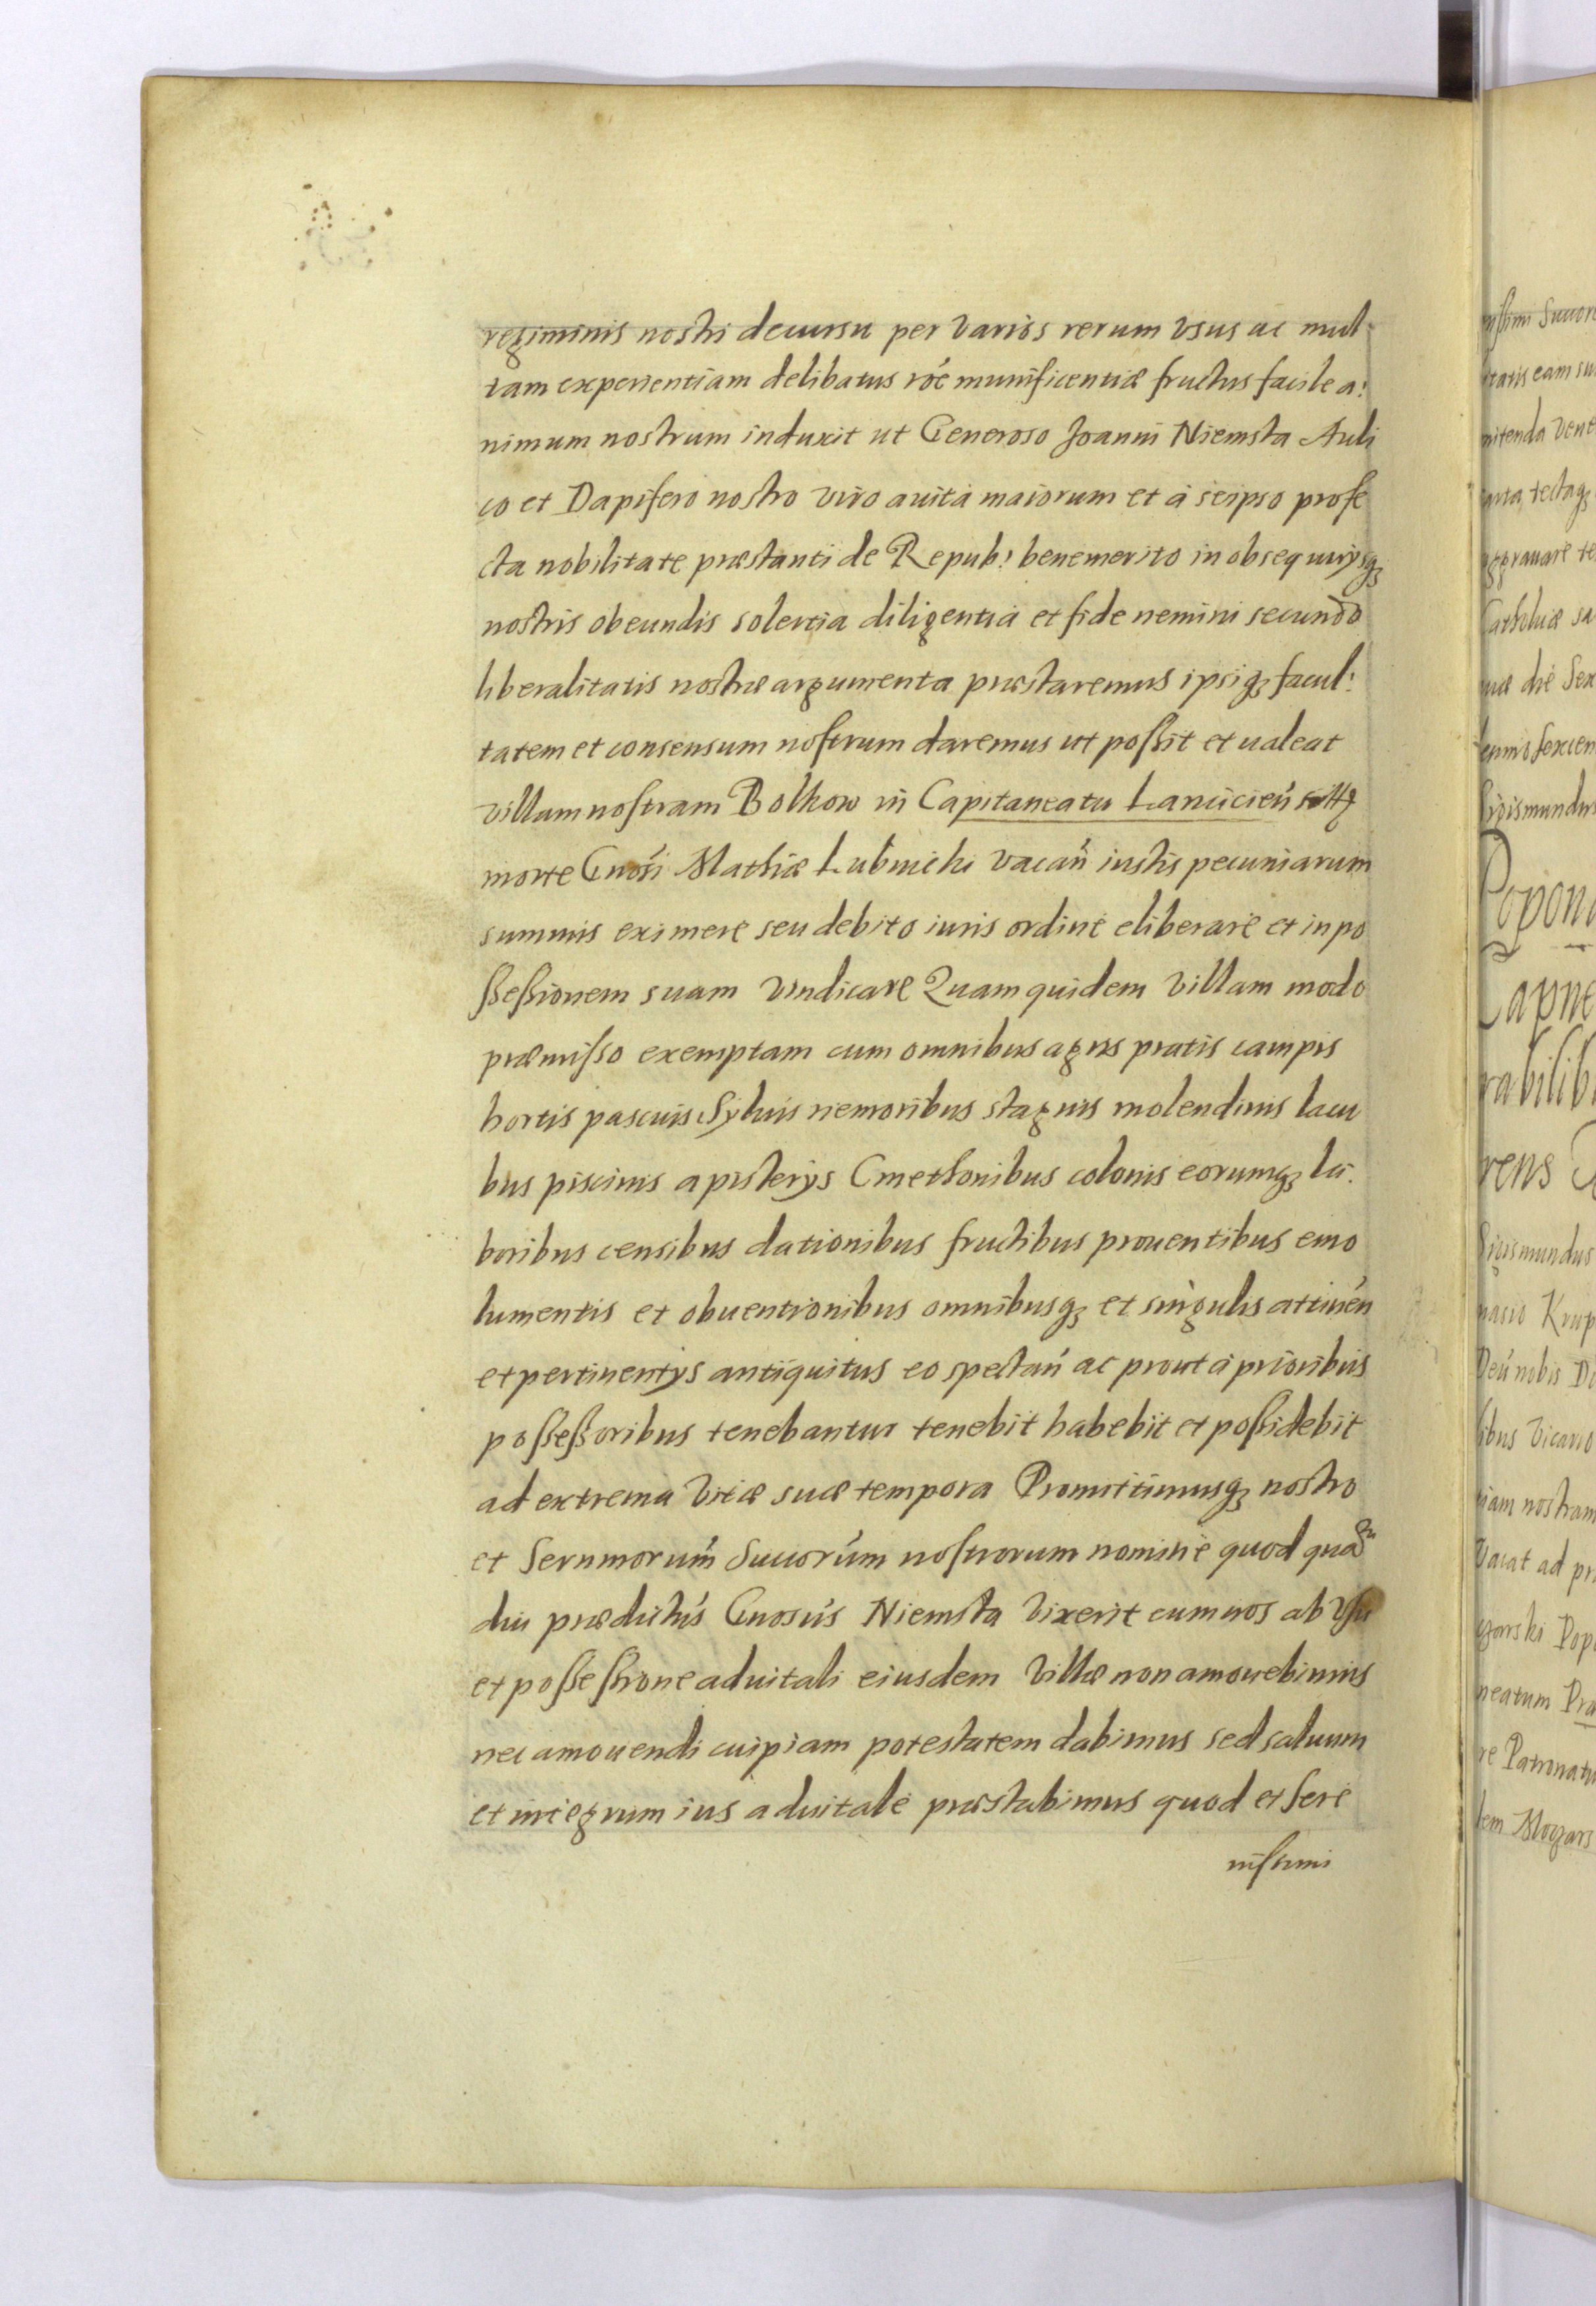 regiminis nostri decursu per varios rerum vsus ac mul-
tam experientiam delibatus roe munificentiæ fructus facile a:
nimum nostrum induxit ut Generoso Joanni Niemsta Auli
co et Dapifero nostro viro auita maiorum et à seipso profe
cta nobilitate præstanti de Repub: benemerito in obsequiysqꝫ
nostris obeundis solertia diligentia et fide nemini secundo
liberalitatis nostræ argumenta præstaremus ipsiqꝫ facul:
tatem et consensum nostrum daremus ut possit et ualeat
villam nostram Bolkow in Capitaneatu Lanicień
morte Gnosi Mathiæ Lubnicki vacań iustis pecuniarum
summis eximere seu debito iuris ordine eliberare et in po
ssessionem suam vindicare Quam quidem villam modo
præmisso exemptam cum omnibus agris pratis campis
hortis pascuis Syluis nemoribus stagnis molendinis lacu
bus piscinis apisterys Cmethonibus colonis eorumqꝫ la:
boribus censibus dationibus fructibus prouentibus emo
lumentis et obuentionibus omnibusqꝫ et singulis attineń
et pertinentys antiquitus eo spectań ac prout à prioribus
possessoribus tenebantur tenebit habebit et possidebit
ad extrema vitæ suæ tempora Promittimusqꝫ nostro
et Sernmorum Succorum nostrorum nomine quod quā
diu prædictus Gnosus Niemsta vixerit eum nos ab vsu
et possessione aduitali eiusdem villæ non amouebimus
nec amouendi cuipiam potestatem dabimus sed saluum
et integrum ius aduitale præstabimus quod et sere
nissimi